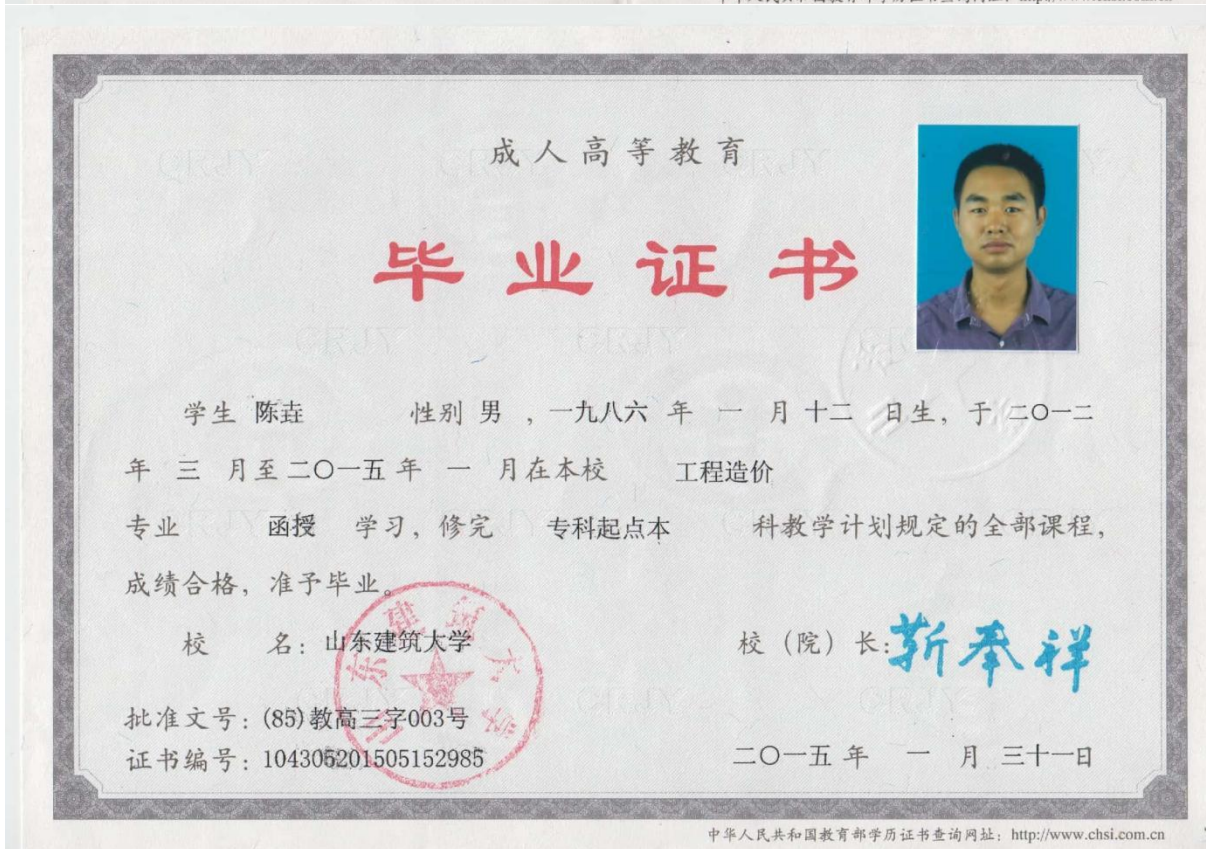 成人高等教育
毕业证书
学生 陈壵 性别 男 ，一九八六 年 一 月 十二 日生，于 二〇一二
年 三 月至 二〇一五 年 一 月在本校 工程造价
专业 函授 学习，修完 专科起点本 科教学计划规定的全部课程，
成绩合格，准予毕业。
校 名：山东建筑大学 校（院）长：靳奉祥
山东建筑大学
批准文号：(85)教高三字003号
证书编号：104305201505152985 二〇一五 年 一 月 三十一日
中华人民共和国教育部学历证书查询网址：http://www.chsi.com.cn